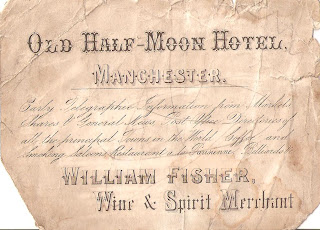 OLD HALF-MOON HOTEL,
MANCHESTER.
Early Telegraphic Information from Market
Shares & General News, Post Office Directories of
all the principal Towns in the World, Coffee and
Smoking Saloons, Restaurant a la Parisienne, Billiards
WILLIAM FISHER,
Wine & Spirit Merchant